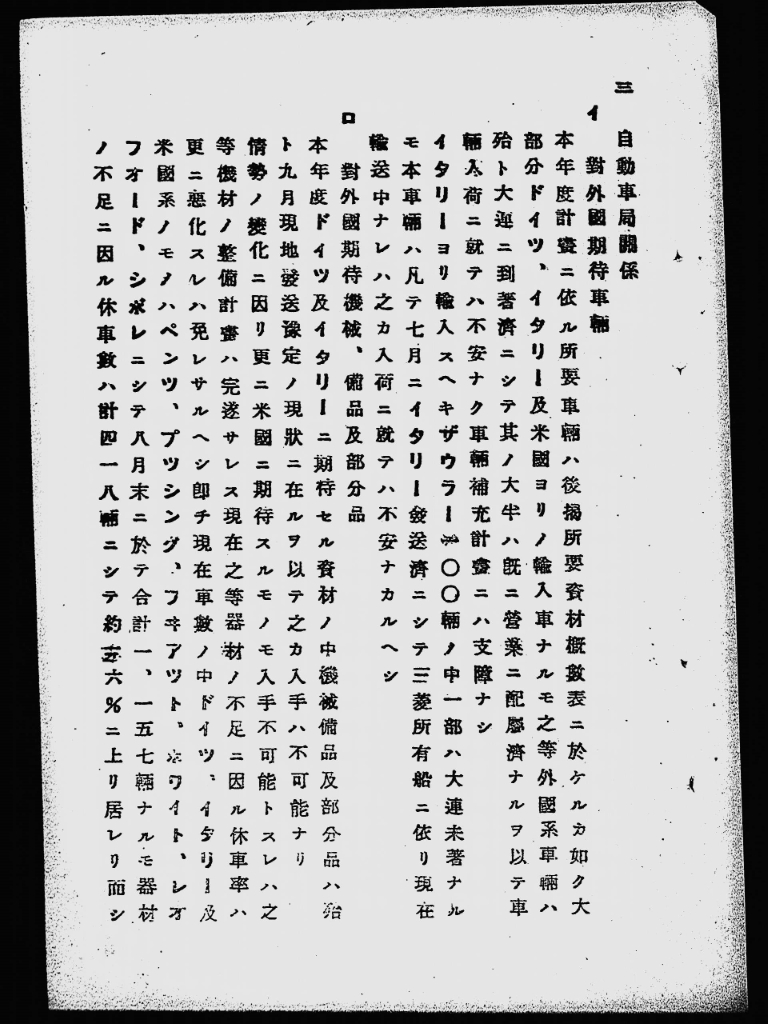 三 自動車局關係
イ 對外國期待車輛
本年度計畫ニ依ル所要車輛ハ後揭所要資材概數表ニ於ケルカ如ク大
部分ドイツ、イタリー及米國ヨリノ輸入車ナルモ之等外國系車輛ハ
殆ト大連ニ到著濟ニシテ其ノ大半ハ旣ニ營業ニ配屬濟ナルヲ以テ車
輛入荷ニ就テハ不安ナク車輛補充計畫ニハ支障ナシ
イタリーヨリ輸入スヘキザウラー 〇〇輛ノ中一部ハ大連未著ナル
モ本車輛ハ凡テ七月ニイタリー發送濟ニシテ三菱所有船ニ依リ現在
輸送中ナレハ之カ入荷ニ就テハ不安ナカルヘシ
ロ 對外國期待機械、備品及部分品
本年度ドイツ及イタリーニ期待セル資材ノ中機械備品及部分品ハ殆
ト九月現地發送豫定ノ現狀ニ在ルヲ以テ之カ入手ハ不可能ナリ
情勢ノ變化ニ因リ更ニ米國ニ期待スルモノモ入手不可能トスレハ之
等機材ノ整備計畫ハ完遂サレス現在之等器材ノ不足ニ因ル休車率ハ
更ニ惡化スルハ免レサルヘシ卽チ現在車數ノ中ドイツ、イタリー及
米國系ノモノハベンツ、ブツシング、フヰアツト、ホワイト、レオ
フオード、シボレニシテ八月末ニ於テ合計一、一五七輛ナルモ器材
ノ不足ニ因ル休車數ハ計四一八輛ニシテ約三六%ニ上リ居レリ而シ